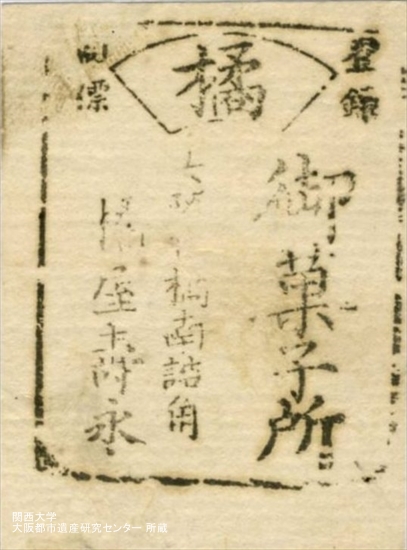 登録
橘
商標
御菓子所
橋南詰角
橘屋
永
関西大学
大阪都市遺産研究センター 所蔵